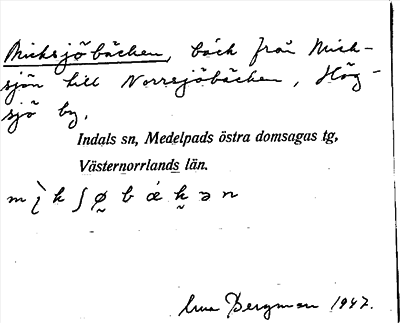 Micksjöbäcken, bäck från Mick-
sjön till Norrsjöbäcken, Hög-
sjö by,
Indals sn, Medelpads östra domsagas tg,
Västernorrlands län.
Bergman 1947.